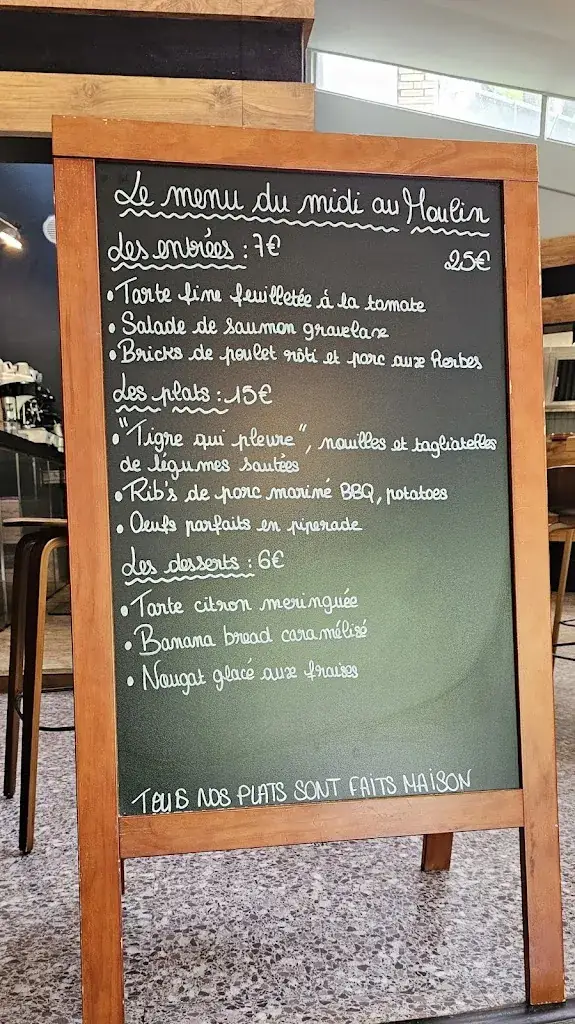 Le menu du midi au Moulin
Les entrées : 7€ 25€
• Tarte fine feuilletée à la tomate
• Salade de saumon gravelax
• Bricks de poulet rôti et porc aux Herbes
Les plats : 15€
• "Tigre qui pleure", nouilles et tagliatelles
de légumes sautées
• Rib's de porc mariné BBQ, potatoes
• Oeufs parfaits en piperade
Les desserts : 6€
• Tarte citron meringuée
• Banana bread caramélisé
• Nougat glacé aux fraises
TOUS NOS PLATS SONT FAITS MAISON